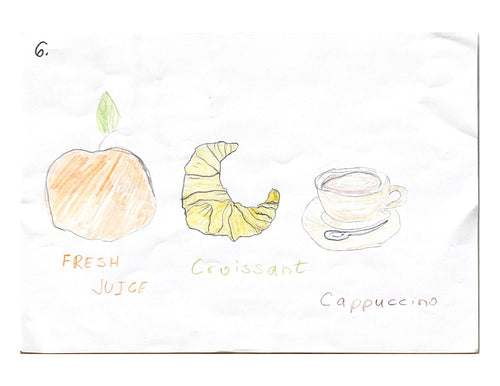 6.
FRESH
JUICE
Croissant
Cappuccino